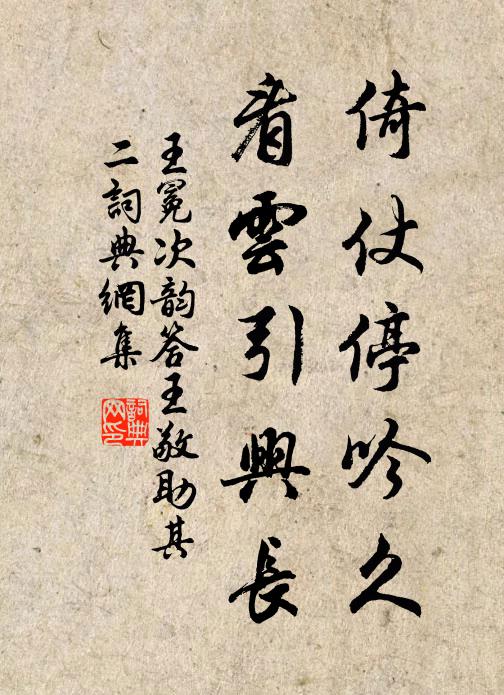 倚仗停吟久
看雲引興長
王冕次韵答王敬助其
二詞典網集
詞典
网印